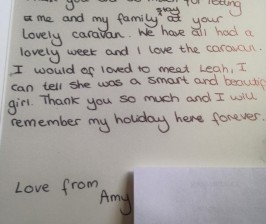 you so much for letting
me and my family stay at your
lovely caravan. We have all had a
lovely week and I love the caravan.
I would of loved to meet Leah, I
can tell she was a smart and beautiful
girl. Thank you so much and I will
remember my holiday here forever.
Love from
Amy